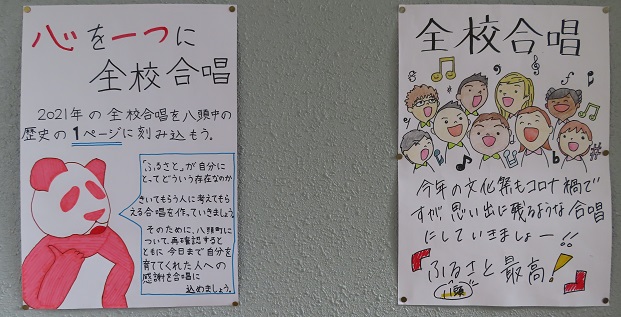 心を一つに
全校合唱
2021年の全校合唱を八頭中の
歴史の1ページに刻み込もう。
「ふるさと」が自分に
とってどういう存在なのか
きいてもらう人に考えてもら
える合唱を作っていきましょう
そのために、八頭町に
ついて再確認すると
ともに今日まで自分を
育ててくれた人への
感謝を合唱に
込めましょう。
全校合唱
今年の文化祭もコロナ禍で
すが思い出に残るような合唱
にしていきましょー!!
『ふるさと最高!』
八頭